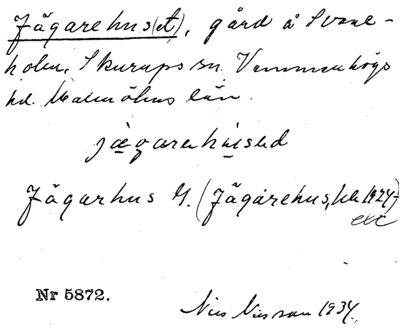 Jägarehus(et), gård å Svane-
holm, Skurups sn. Vemmenhögs
hd. Malmöhus län.
jägarehused
Jägarhus G. (Jägarehus, 1924)
Nr 5872.
Nils Nilsson 1934.